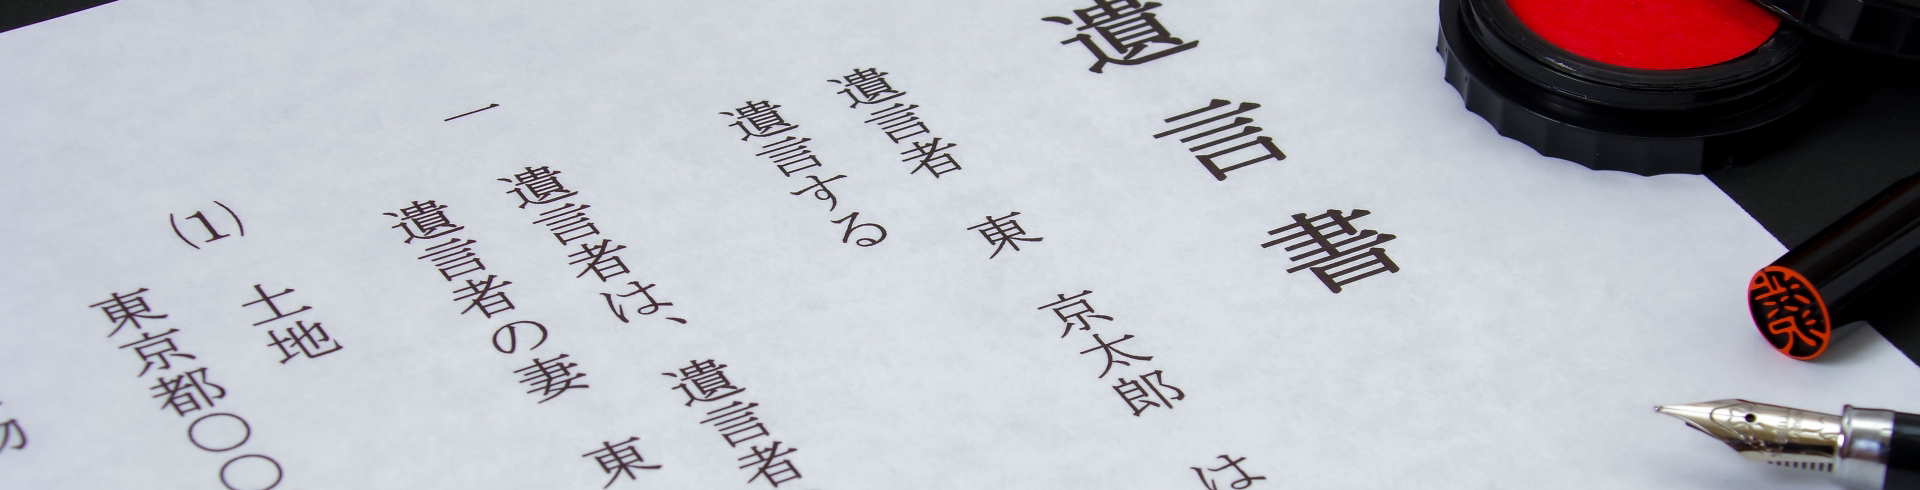 遺言書
遺言者 東 京太郎 は
遺言する
一 遺言者は、遺言者
遺言者の妻 東
(1) 土地
東京都〇〇